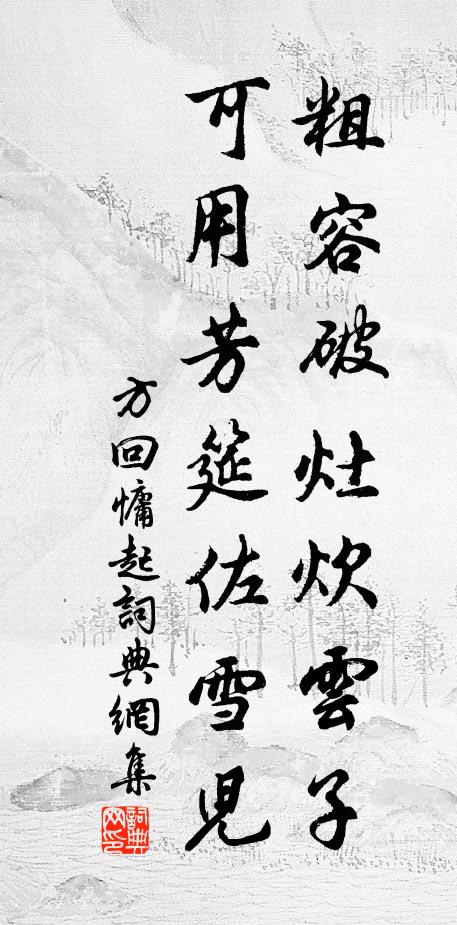 粗容破灶炊雲子
可用芳筵佐雪児
方回慵起詞典網集
詞典網印